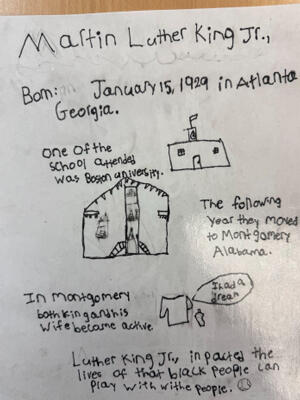 Martin Luther King Jr.,
Born: January 15, 1929 in Atlanta
Georgia.
One of the
school attended
was Boston university.
The following
year they moved
to Montgomery
Alabama.
In Montgomery
both king and his
wife become active
I had a
dream
Luther King Jr., in pacted the
lives of that black people can
play with withe people.